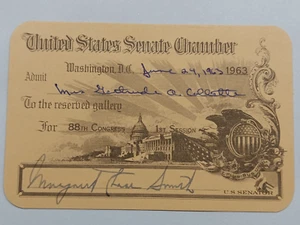 United States Senate Chamber
Washington, D.C. June 24, 1963 1963
Admit
Mrs Gertrude A.
To the reserved gallery
For 88th Congress 1st Session
Margaret Chase Smith
U.S. SENATOR